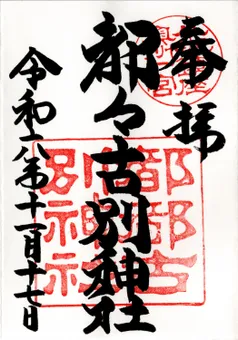 奉拝
都々古別神社
令和六年十一月十七日
都都古
別神社